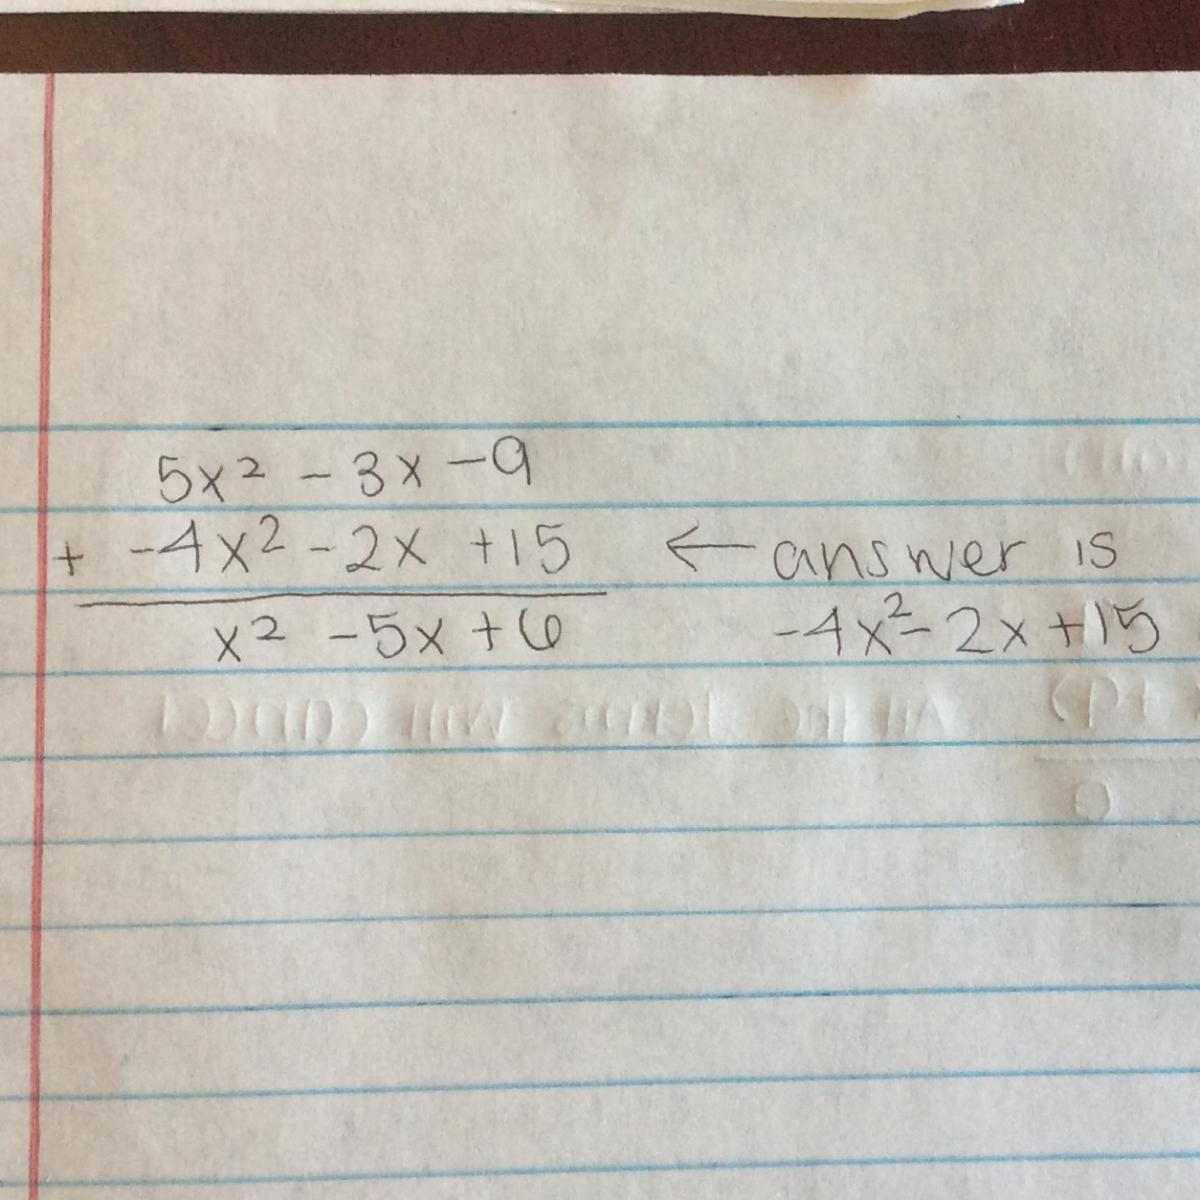 5x² - 3x - 9
+ -4x² - 2x + 15 ← answer is
x² - 5x + 6 -4x² - 2x + 15